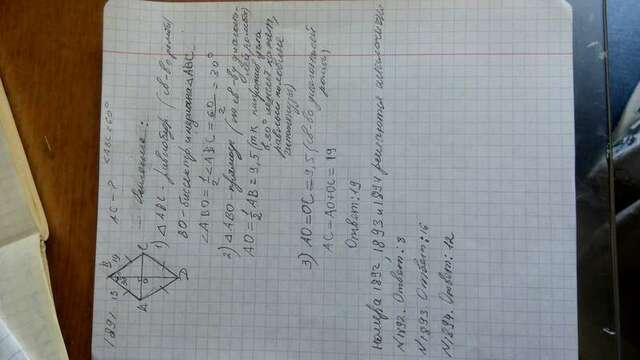 1891. AC - ? <ABC = 60°
B
19 19
A C
O
D
Решение:
1) △ABC - равнобедр (св-во ромба)
BO - биссектр и медиана △ABC
<ABO = 1/2 <ABC = 60/2 = 30°
2) △ABO - прямоуг (т.к. св-ву диагон-
лей ромба)
AO = 1/2 AB = 9,5 (т.к. напротив угла
в 30° лежит катет,
равный половине
гипотенузы)
3) AO = OC = 9,5 (св-во диагоналей
ромба)
AC = AO + OC = 19
Ответ: 19
Номера 1892, 1893 и 1894 решаются аналогично
N1892. Ответ: 8
N1893. Ответ: 16
N1894. Ответ: 12